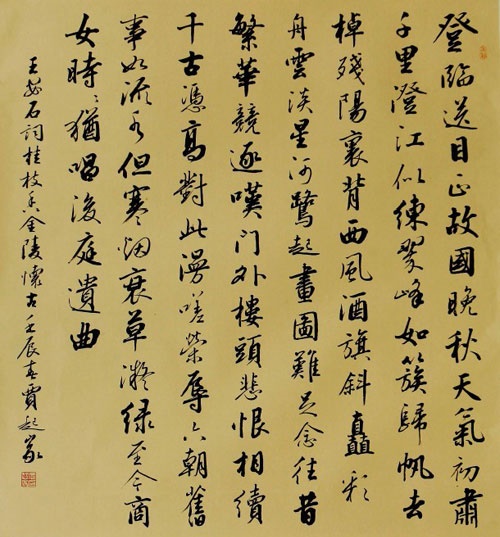 登臨送目正故國晚秋天氣初肅
千里澄江似練翠峰如簇歸帆去
棹殘陽裏背西風酒旗斜矗彩
舟雲淡星河鷺起畫圖難足念往昔
繁華競逐嘆门外樓頭悲恨相續
千古憑高對此漫嗟榮辱六朝舊
事如流水但寒烟衰草凝绿至今商
女時〻猶唱後庭遺曲
王安石詞桂枝香金陵懷古壬辰春賈起家